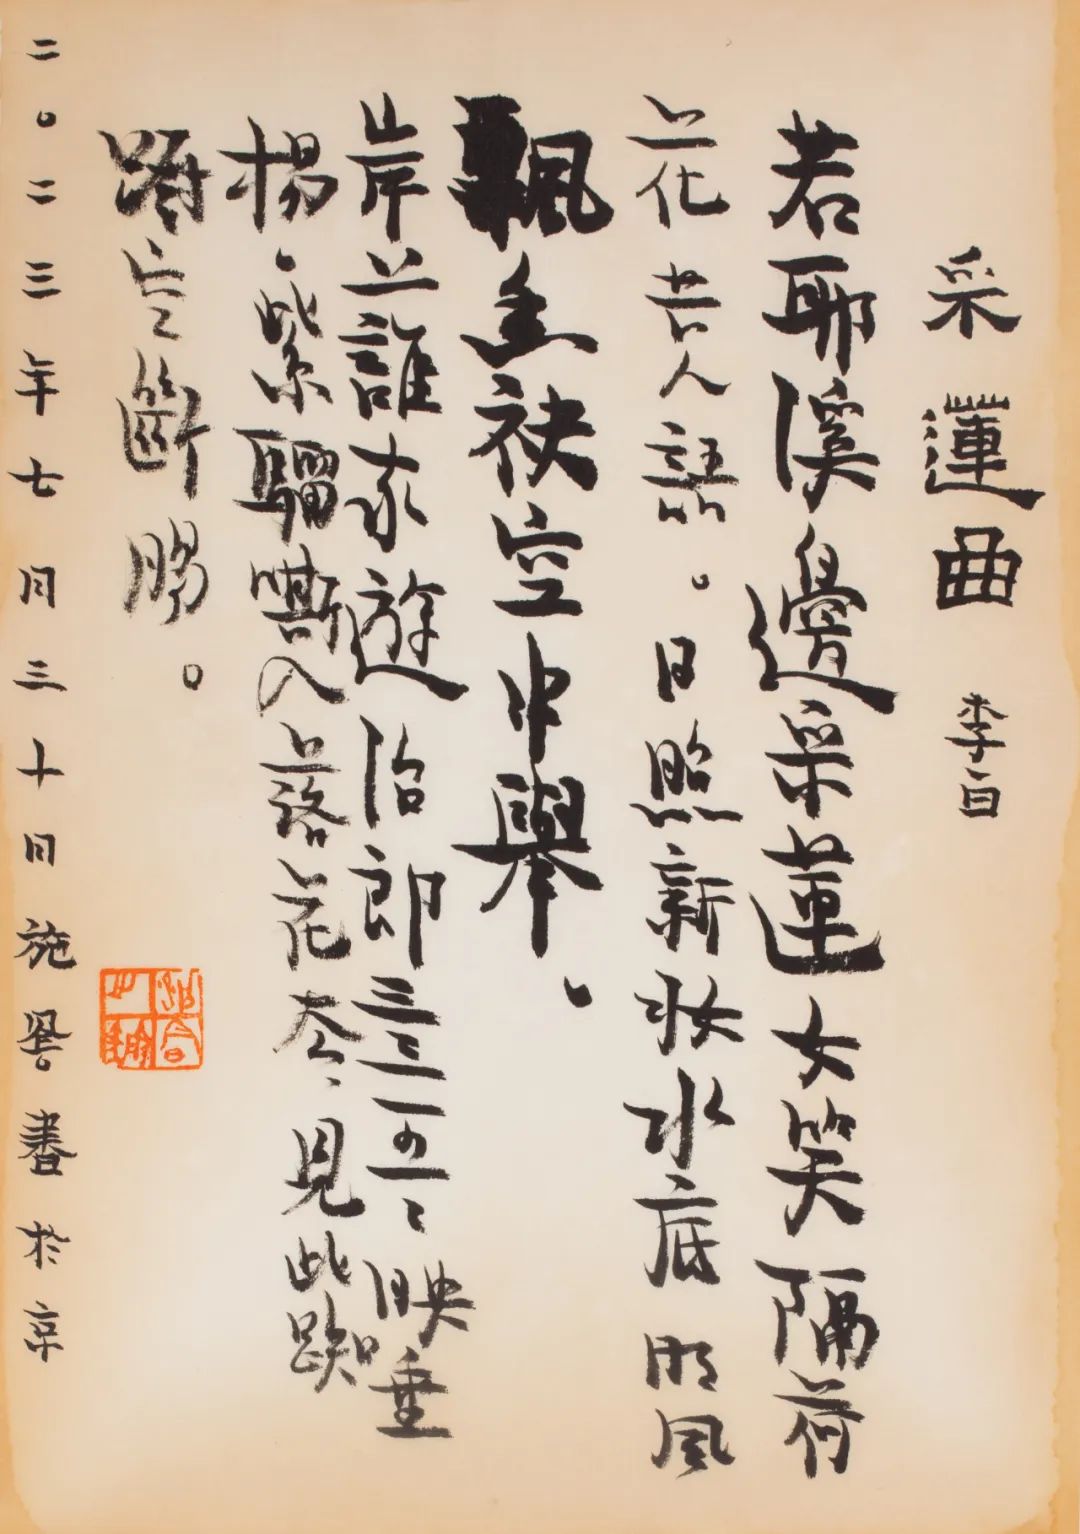 采蓮曲 李白
若耶溪邊采蓮女笑隔荷
花共人語。日照新妝水底明風
飄香袂空中舉。
岸上誰家遊冶郎三三五五、映垂
楊、紫騮嘶入落花去、見此踟
躕空斷腸。
二〇二三年七月三十日施晗書於京